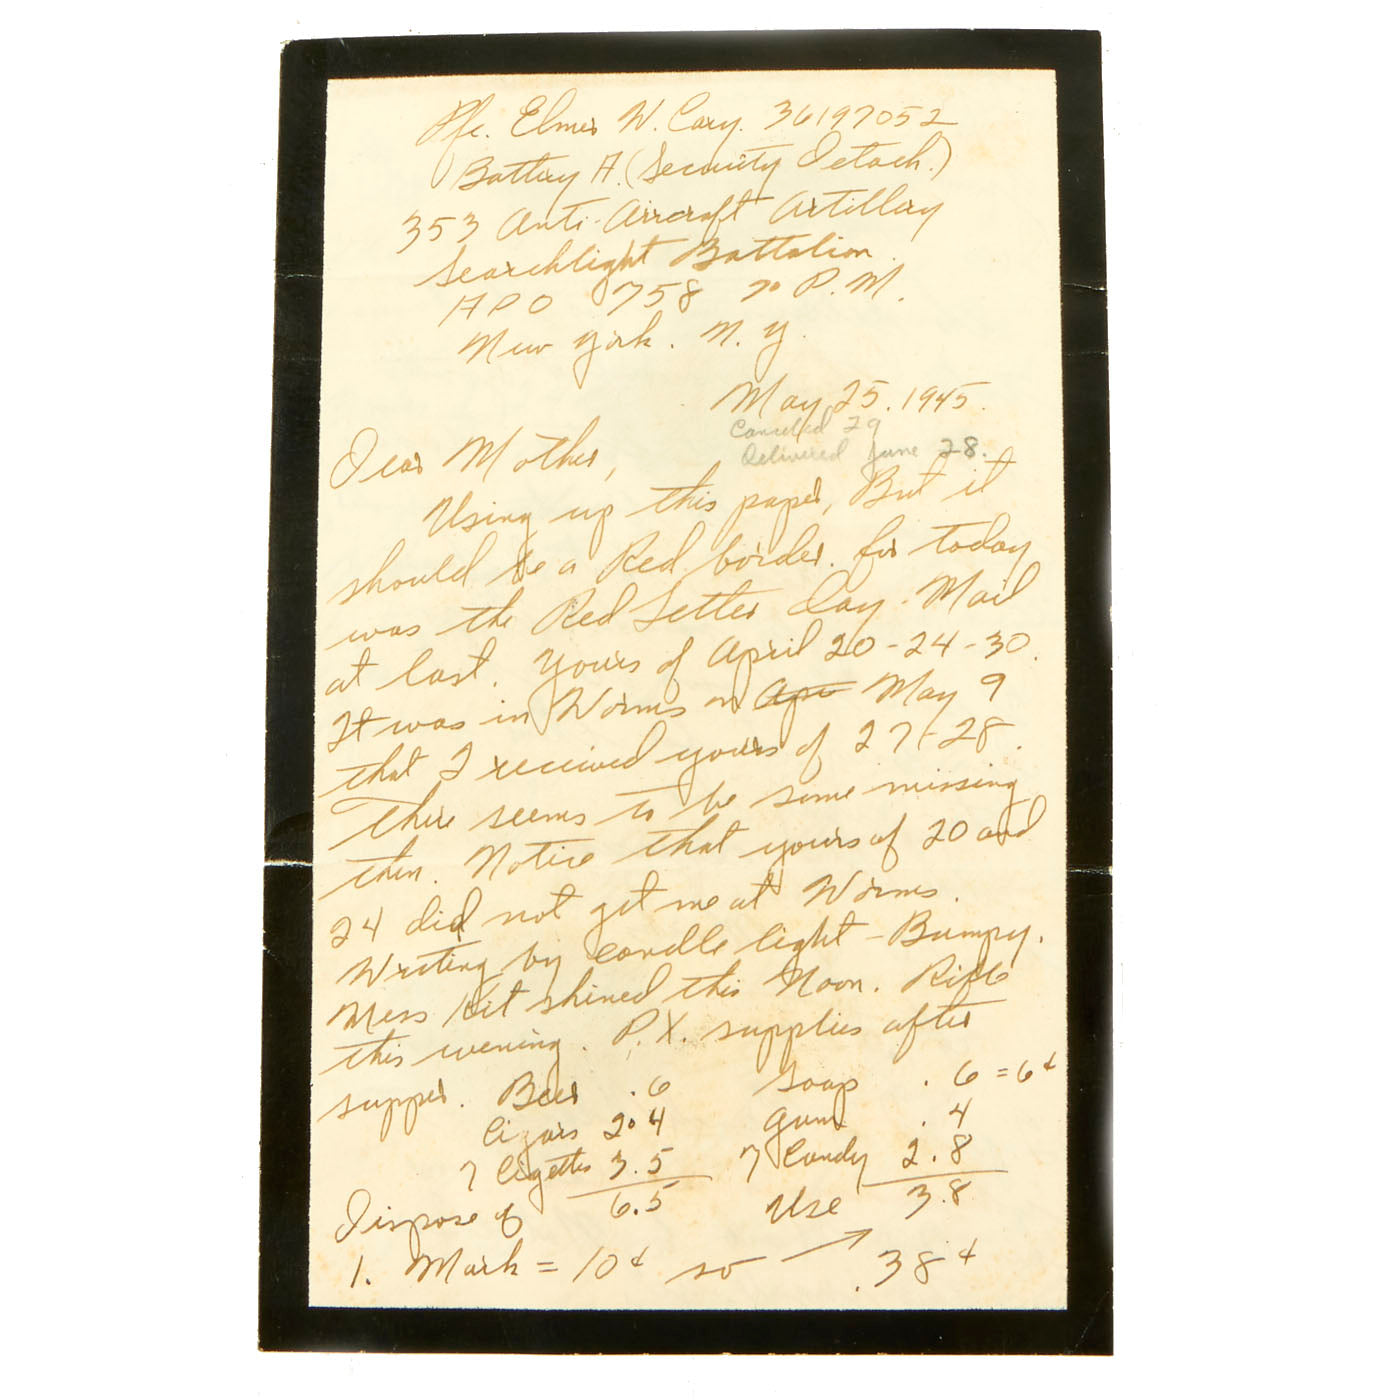 Pfc. Elmer W. Cary. 36197052
Battery A. (Security Detach.)
353 Anti-Aircraft Artillery
Searchlight Battalion.
APO 758 % P.M.
New York. N.Y.
May 25. 1945.
Canceled 29
Delivered June 28.
Dear Mother,
Using up this paper, But it
should be a Red border. for today
was the Red Letter Day. Mail
at last. Yours of April 20-24-30.
It was in Worms on Apr May 9
that I received yours of 27-28.
There seems to be some missing
then. Notice that yours of 20 and
24 did not get me at Worms.
Writing by candle light - Bumpy.
Mess kit shined this Noon. Rifle
this evening. P.X. supplies after
supper. Beer .6 Soap . 6 = 6¢
Cigars 2.4 Gum . 4
7 Cigettes 3.5 7 Candy 2.8
Dispose of 6.5 Use 3.8
1. Mark = 10¢ so → .38¢